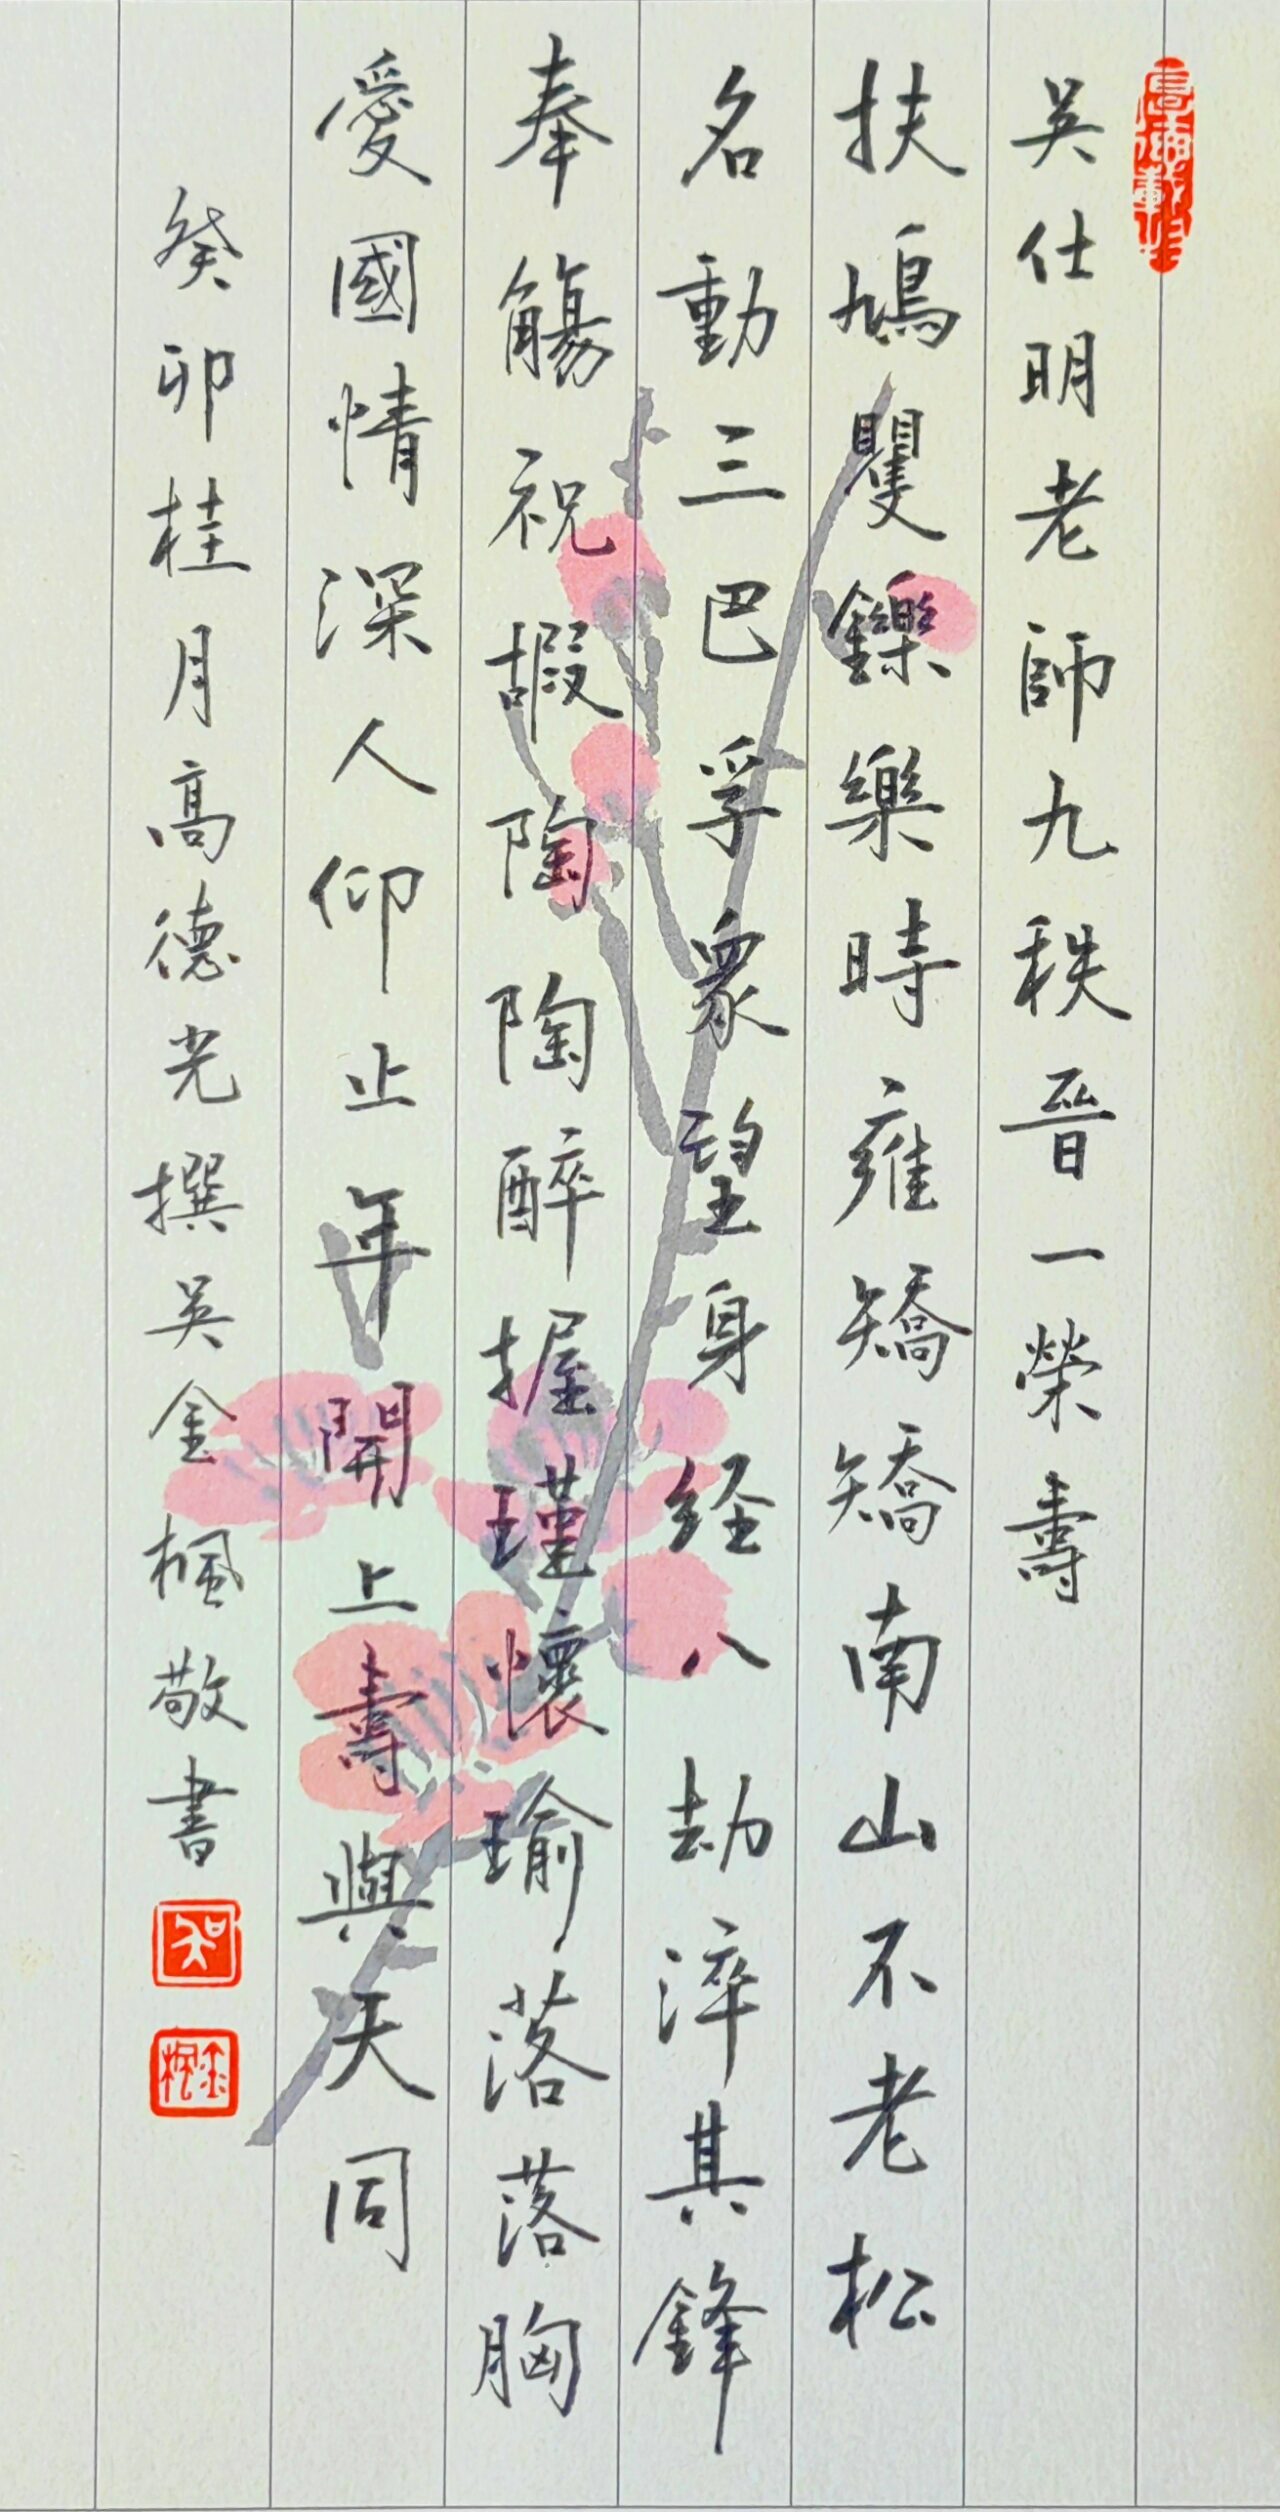 厚德載物
吳仕明老師九秩晉一榮壽
扶鳩矍鑠樂時雍矯矯南山不老松
名動三巴孚眾望身経八劫淬其鋒
奉觴祝嘏陶陶醉握瑾懷瑜落落胸
愛國情深人仰止年開上壽與天同
癸卯桂月高德光撰吳金楓敬書